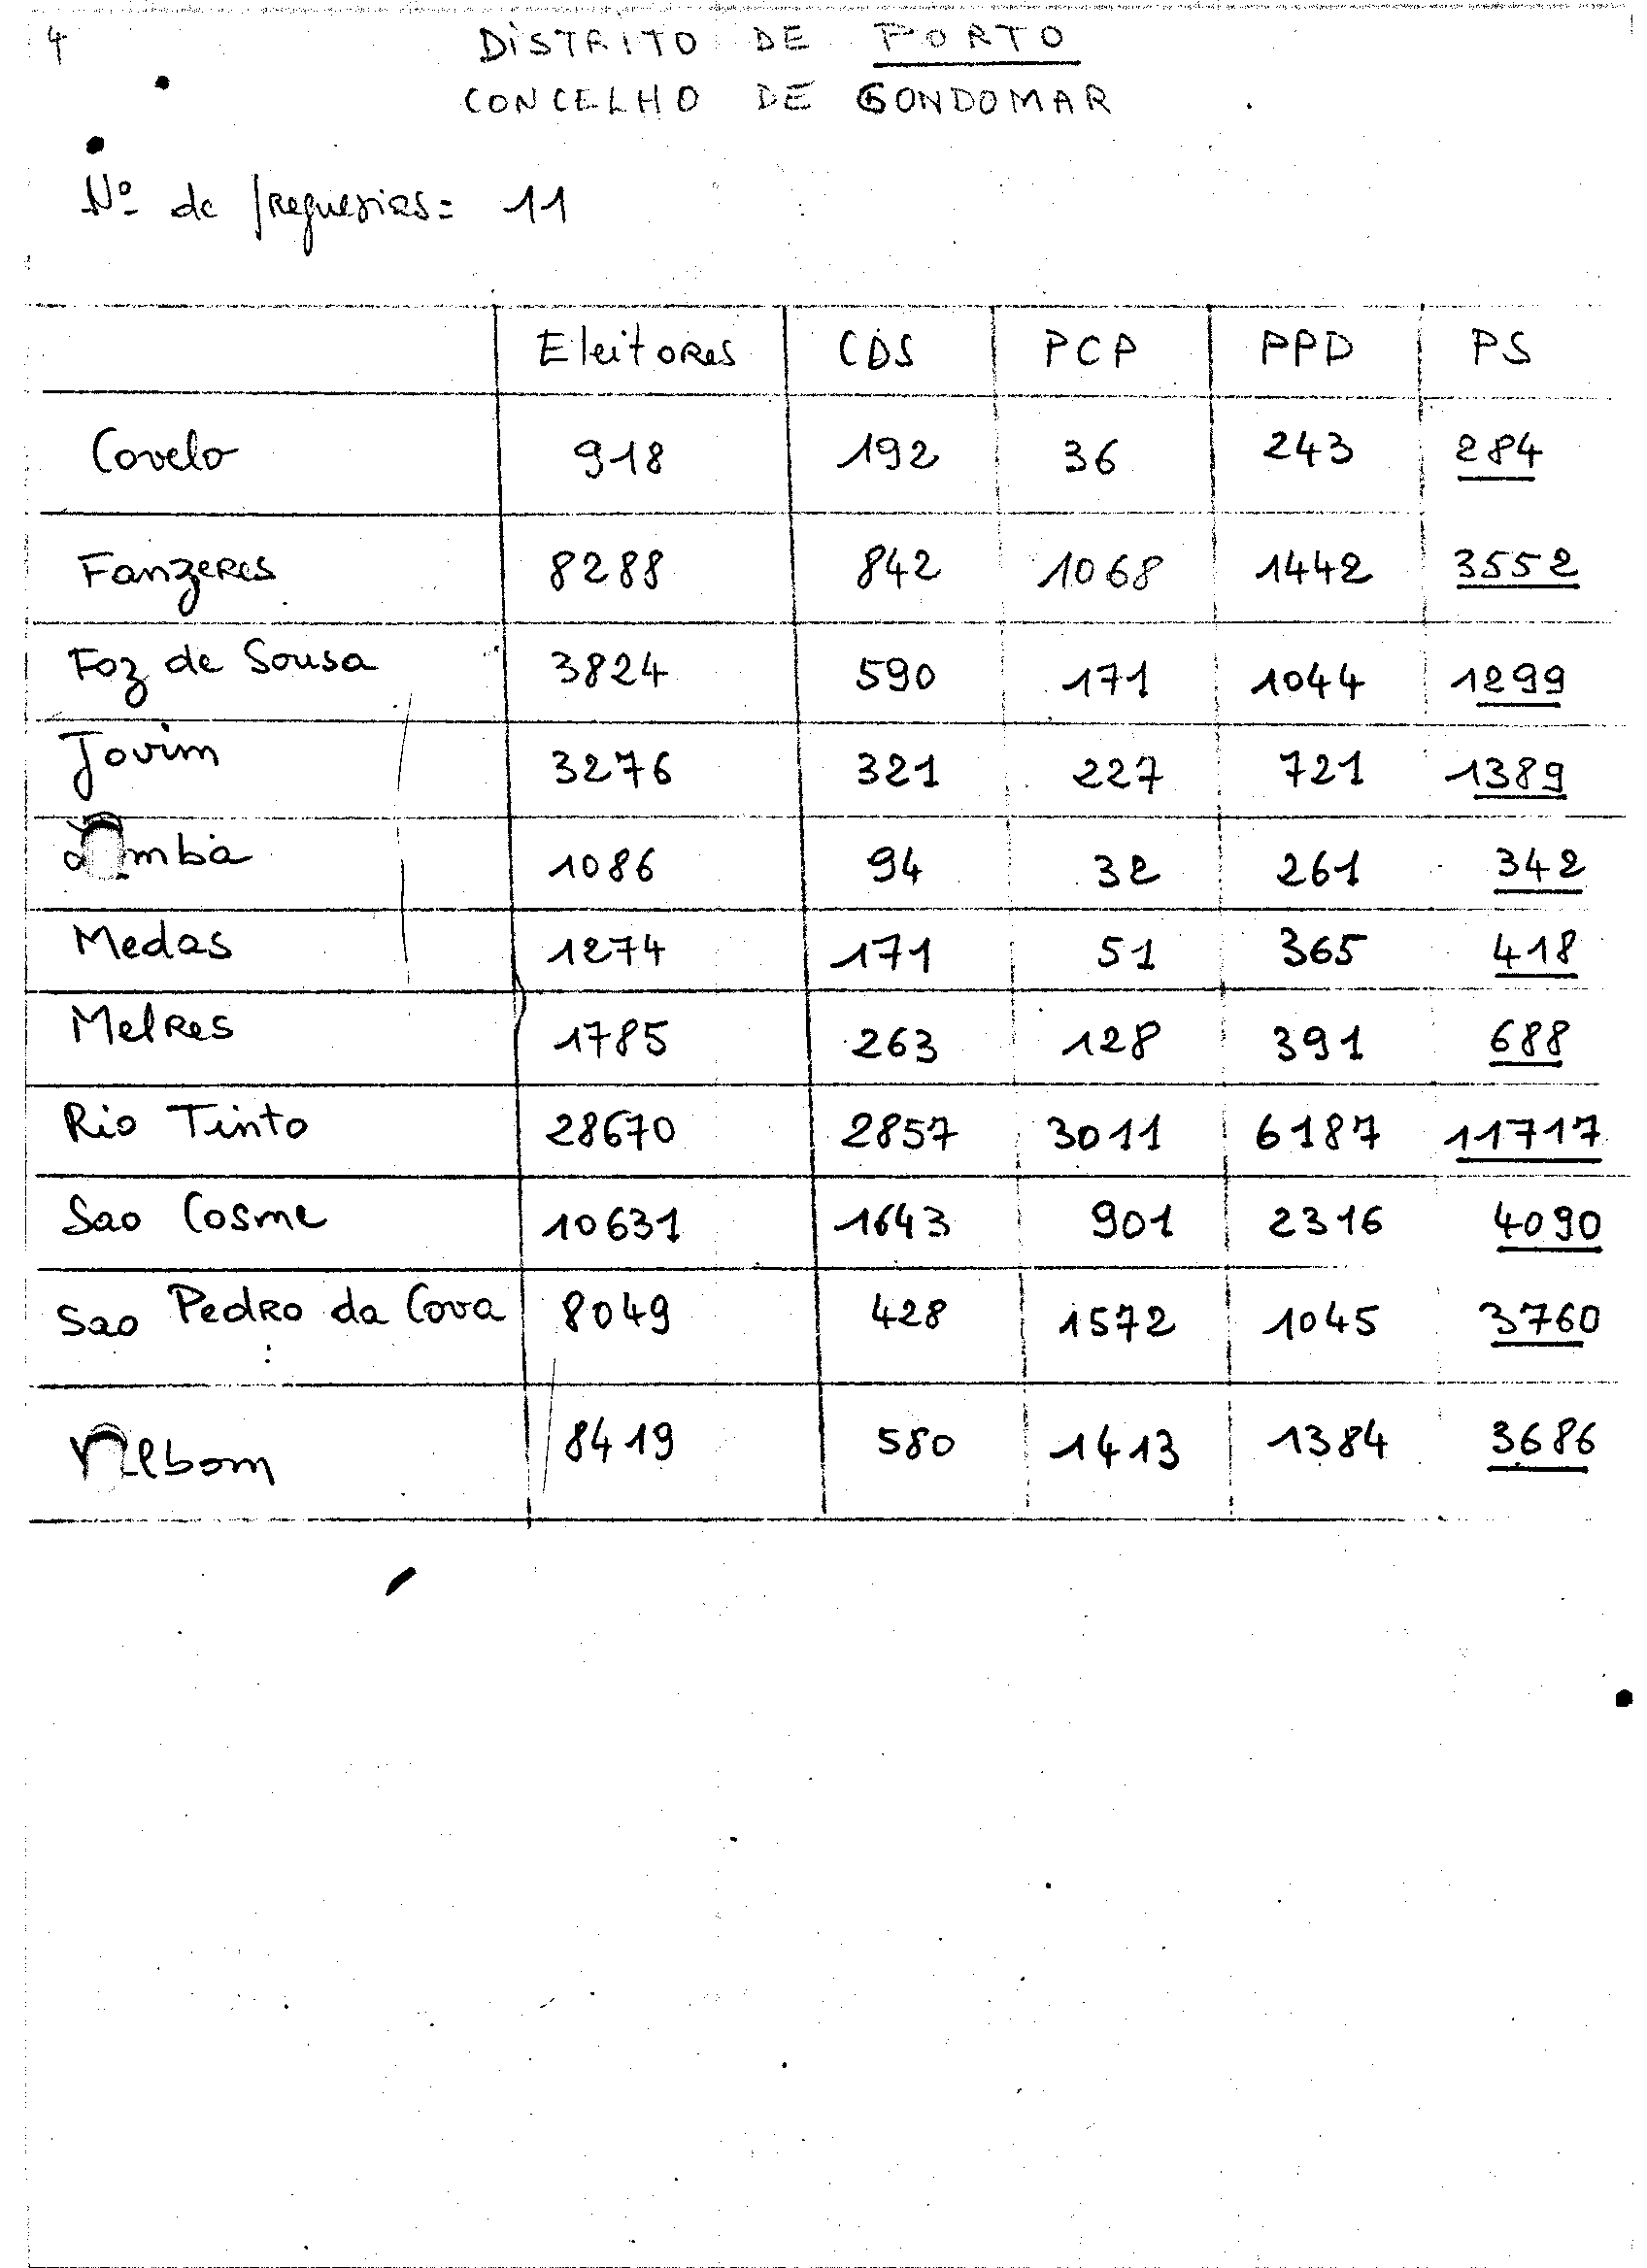 4
DISTRITO DE PORTO
CONCELHO DE GONDOMAR
Nº de freguesias= 11
Eleitores CDS PCP PPD PS
Covelo 918 192 36 243 284
Fanzeres 8288 842 1068 1442 3552
Foz de Sousa 3824 590 171 1044 1299
Jovim 3276 321 227 721 1389
1086 94 32 261 342
Medas 1274 171 51 365 418
Melres 1785 263 128 391 688
Rio Tinto 28670 2857 3011 6187 11717
Sao Cosme 10631 1643 901 2316 4090
Sao Pedro da Cova 8049 428 1572 1045 3760
8419 580 1413 1384 3686